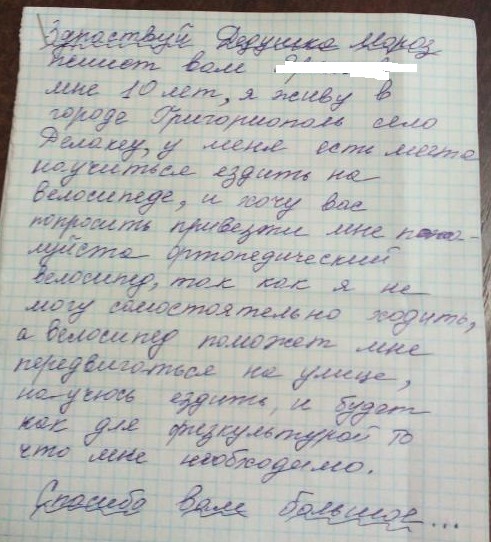 Здраствуй Дедушка Мороз
пешет вам
мне 10 лет, я живу в
городе Григориополь село
Делакеу, у меня есть мечта
научиться ездить на
велосипеде, и хочу вас
попросить привезти мне пожа-
луйста ортопедический
велосипед, так как я не
могу самостоятельно ходить,
а велосипед поможет мне
передвигаться на улице,
научюсь ездить, и будет
как для физкультурой то
что мне необходимо.
Спасибо вам большое...